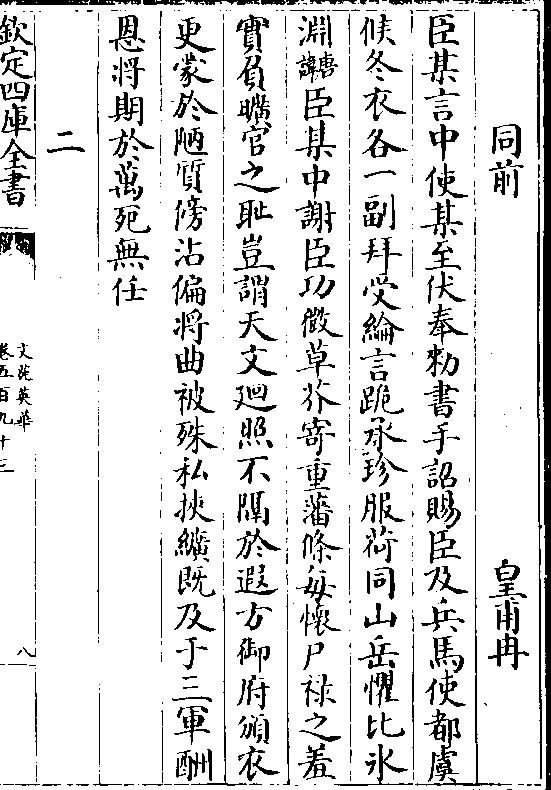 同前　皇甫冉
臣某言中使某至伏奉勑書手詔賜臣及兵馬使都虞
候冬衣各一副拜受綸言跪承珍服荷同山岳懼比氷
淵臣某中謝臣功微草芥寄重藩條每懷尸禄之羞
實負曠官之耻豈謂天文廻照不隔於遐方御府頒衣
更蒙於陋質傍沾偏將曲被殊私挾纊既及于三軍酬
恩將期於萬死無任
二
欽定四庫全書
文苑英華
卷五百九十三
八